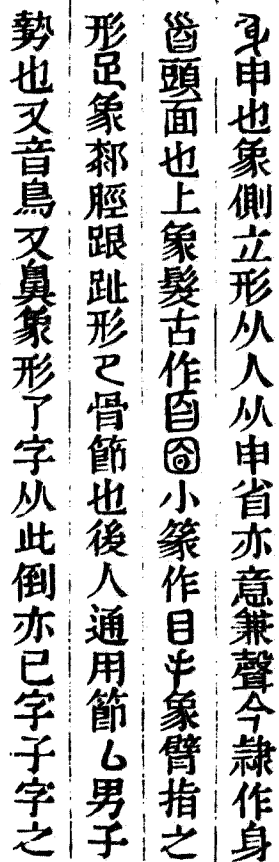 申也象側立形从人从申省亦意兼聲今隷作身
𦣻頭面也上象髮古作小篆作目象臂指之
形足象䣛脛跟趾形㔾骨節也後人通用節𠃊男子
勢也又音鳥又㒵象形了字从此倒亦已字子字之